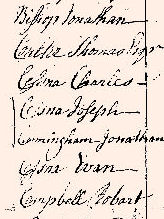 Bishop Jonathan
Cutler Thomas
Cessna Charles
Cessna Joseph
Cunningham Jonathan
Cessna Evan
Campbell Robert